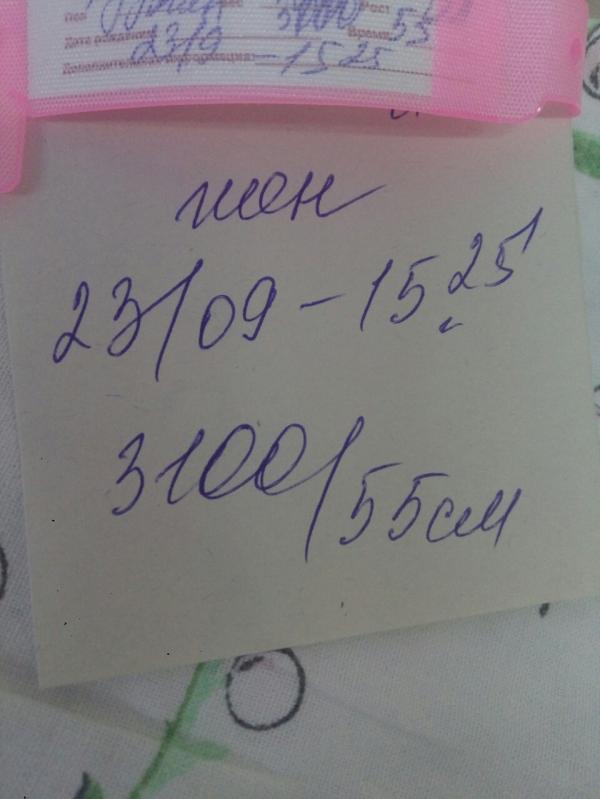 Пол Рост
Дата рождения Время 55
23/9 - 15 25
Дополнительная информация
жен
23/09 - 15 25
3100/55см